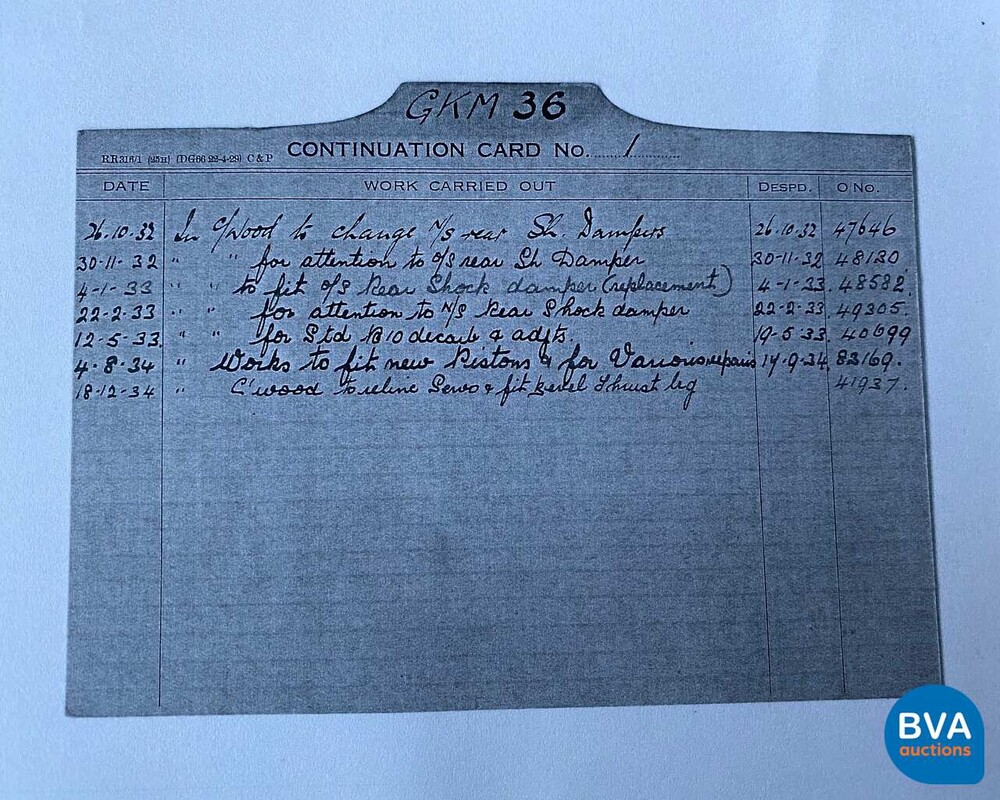 GKM 36
RR316/1 (25H) (DG66 22-4-29) C & P CONTINUATION CARD No. 1
DATE WORK CARRIED OUT DESPD. O No.
26.10.32 In C/Wood to change N/S rear Sh. Dampers 26.10.32 47646
30-11-32 " " for attention to O/S rear Sh Damper 30-11-32 48130
4-1-33 " " to fit O/S Rear Shock damper (replacement) 4-1-33 48582.
22-2-33 " " for attention to N/S Rear Shock damper 22-2-33 49305.
12-5-33 " " for Std B10 decarb & adjts. 19-5-33 40699
4-8-34 " Works to fit new Pistons & for Various repairs 14-9-34 83169.
18-12-34 " C'wood to reline Servo & fit bevel thrust brg 41937.
BVA
auctions